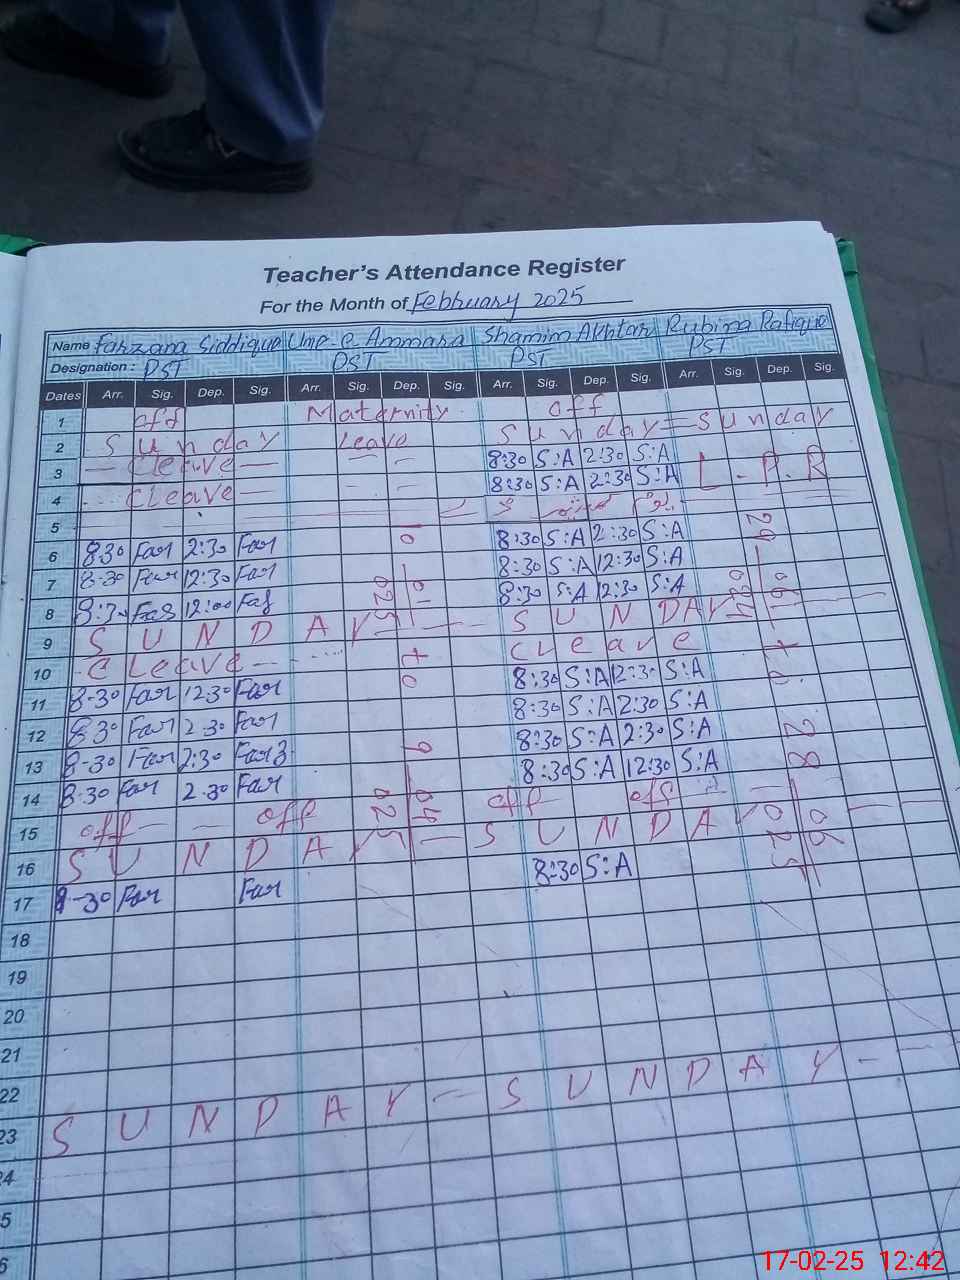 Teacher's Attendance Register
For the Month of February 2025
Name Farzana Siddique Ume-e Ammara Shamim Akhtar Rubina Rafique
Designation : PST PST PST PST
Dates Arr. Sig. Dep. Sig. Arr. Sig. Dep. Sig. Arr. Sig. Dep. Sig. Arr. Sig. Dep. Sig.
1 off Maternity off
2 Sunday Leave Sunday = Sunday
3 — C leave — 8:30 S:A 2:30 S:A L.P.R
4 C leave — 8:30 S:A 2:30 S:A
5
6 8:30 Far 2:30 Far 8:30 S:A 2:30 S:A
7 8:30 Far 12:30 Far 8:30 S:A 12:30 S:A
8 8:30 Far 12:00 Far 8:30 S:A 12:30 S:A
9 S U N D A Y — S U N D A Y
10 C Leave — C leave
11 8:30 Far 12:30 Far 8:30 S:A 2:30 S:A
12 8:30 Far 2:30 Far 8:30 S:A 2:30 S:A
13 8:30 Far 2:30 Far 8:30 S:A 2:30 S:A
14 8:30 Far 2:30 Far 8:30 S:A 12:30 S:A
15 off — — off off — off
16 S U N D A Y — S U N D A Y
17 8:30 Far Far 8:30 S:A
to
to 28
18
19
20
21
22
23 S U N D A Y — S U N D A Y —
17-02-25 12:42